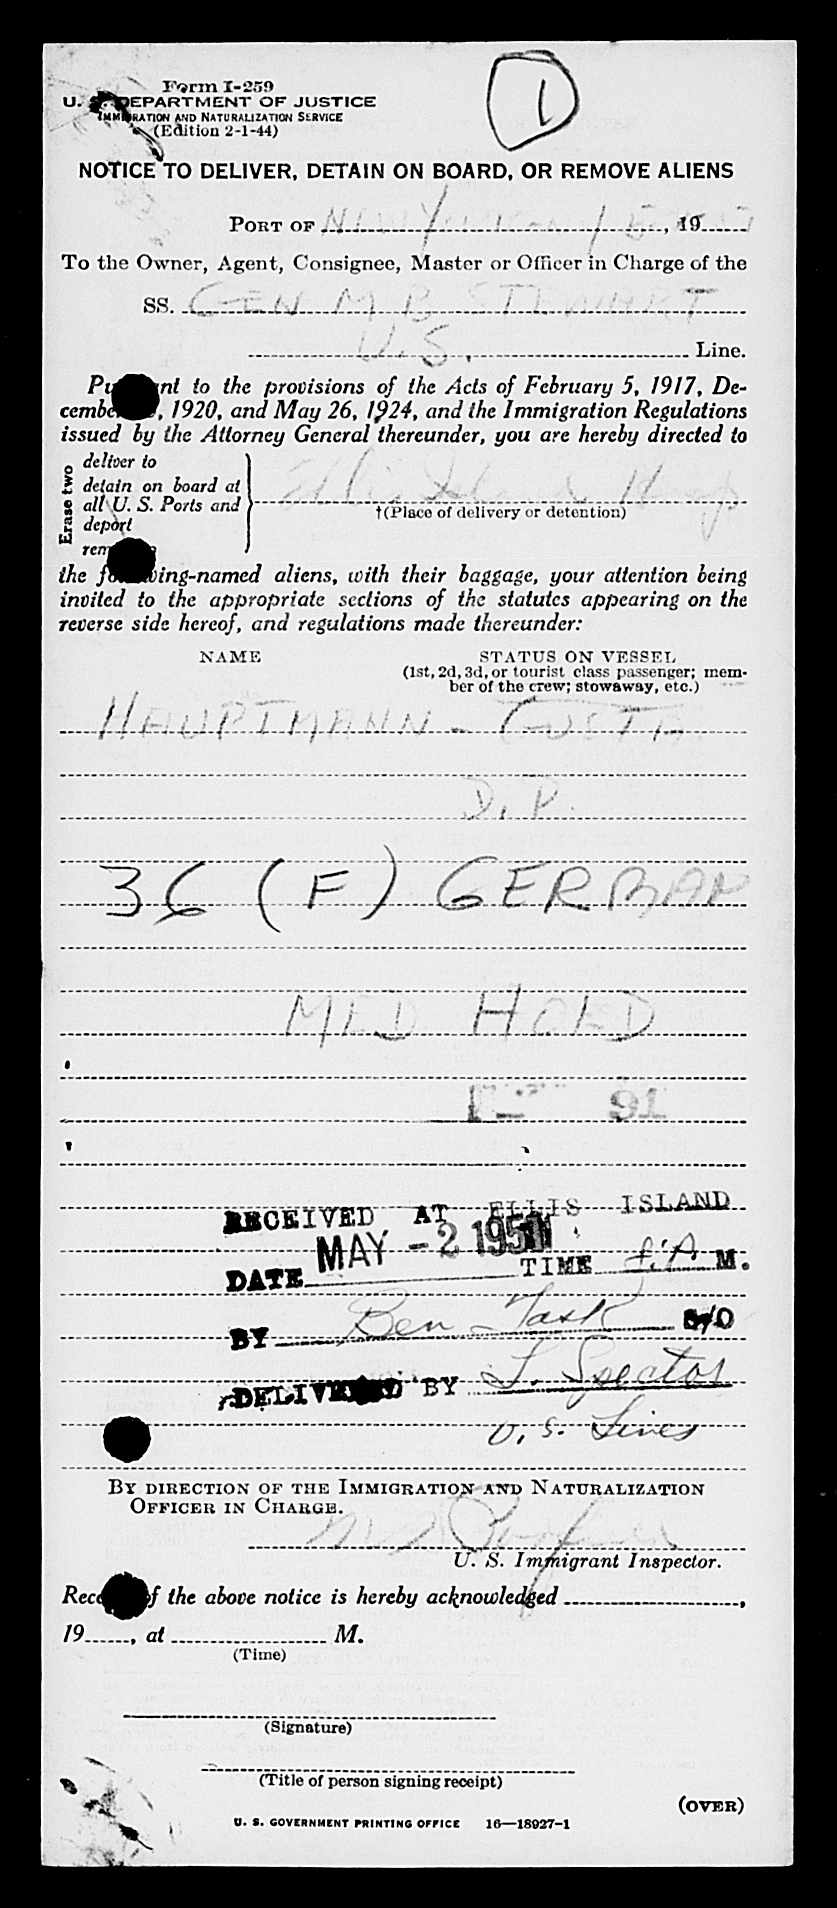 Form I-259
1
U. S. DEPARTMENT OF JUSTICE
IMMIGRATION AND NATURALIZATION SERVICE
(Edition 2-1-44)
NOTICE TO DELIVER, DETAIN ON BOARD, OR REMOVE ALIENS
PORT OF New York , 19
To the Owner, Agent, Consignee, Master or Officer in Charge of the
SS. GEN M. B STEWART
U.S. Line.
Pursuant to the provisions of the Acts of February 5, 1917, De-
cember , 1920, and May 26, 1924, and the Immigration Regulations
issued by the Attorney General thereunder, you are hereby directed to
Erase two
deliver to
detain on board at
all U. S. Ports and
deport
remove
Ellis Island Hosp
†(Place of delivery or detention)
the following-named aliens, with their baggage, your attention being
invited to the appropriate sections of the statutes appearing on the
reverse side hereof, and regulations made thereunder:
NAME STATUS ON VESSEL
(1st, 2d, 3d, or tourist class passenger; mem-
ber of the crew; stowaway, etc.)
HAUPTMANN - GUSTA
D.P.
36 (F) GERMAN
MED HOLD
91
RECEIVED AT ELLIS ISLAND
MAY -2 1951
DATE TIME A M.
BY Ben Task
DELIVERED BY J. Spector
U.S. Lines
BY DIRECTION OF THE IMMIGRATION AND NATURALIZATION
OFFICER IN CHARGE.
U. S. Immigrant Inspector.
Receipt of the above notice is hereby acknowledged ,
19 , at M.
(Time)
(Signature)
(Title of person signing receipt)
(OVER)
U. S. GOVERNMENT PRINTING OFFICE 16—18927-1